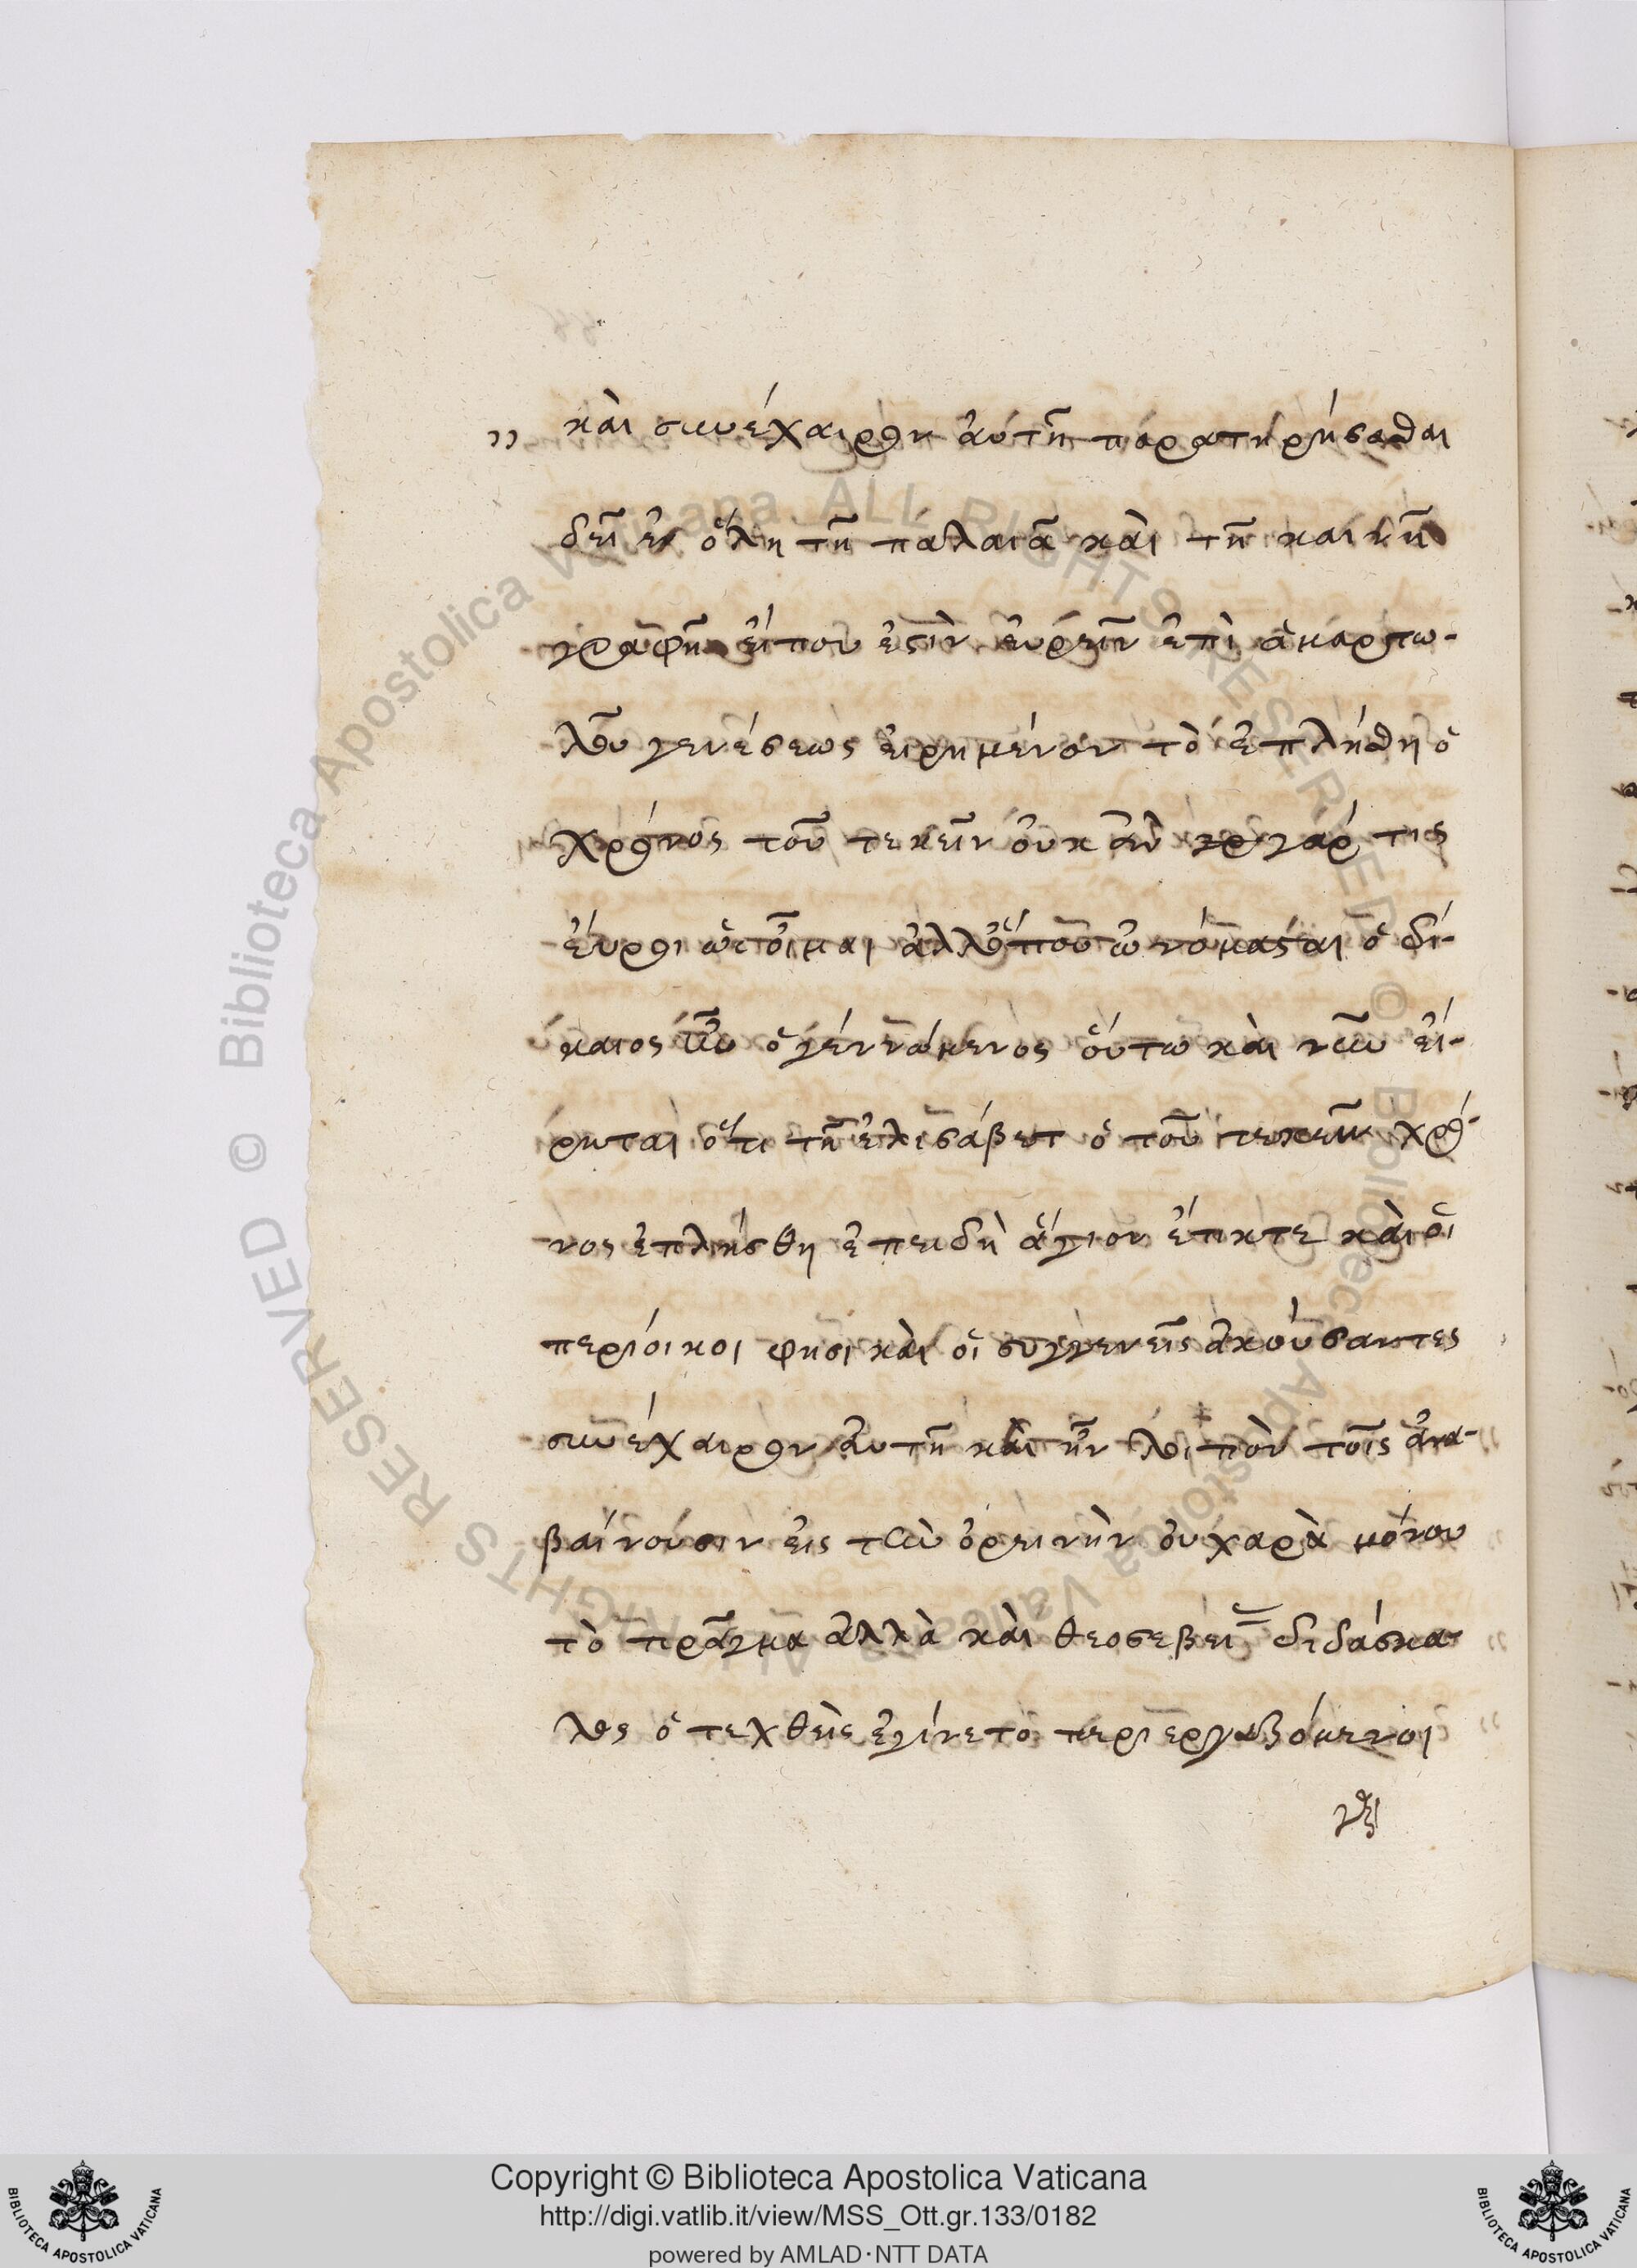 ,, καὶ συνέχαιρον ἀυτῆ παρατηρήσασθαι
δεῖ ἐν ὅλη τῆ παλαιᾶ καὶ τῆ καινῆ
γραφῆ εἴπου ἐστὶν ἑυρεῖν ἐπὶ ἁμαρτω-
λοῦ γενέσεως εἰρημένον τὸ ἐπλήσθη ὁ
χρόνος τοῦ τεκεῖν οὐκ ἂν γὰρ τις
ἕυροι ὡς οἶμαι ἀλλ' ὅπου ὠνόμασται ὁ δί-
καιος ἦν ὁ γεννώμενος ὅυτω καὶ νῦν εἴ-
ρηται ὅτι τῆ ἐλισάβετ ὁ τοῦ τεκεῖν χρό-
νος ἐπλήσθη ἐπειδὴ ἅγιον ἔτικτε καὶ ὁι
περίοικοι φησι καὶ ὁι συγγενεῖς ἀκούσαντες
συνέχαιρον ἀυτῆ καὶ ἦν λοιπὸν τοῖς ἀνα-
βαίνουσιν εἰς τὴν ὀρεινὴν οὐ χαρὰ μόνον
τὸ πρᾶγμα ἀλλὰ καὶ θεοσεβεί διδάσκα-
λος ὁ τεχθεὶς ἐγίνετο περιεργαζόμενοι
Copyright © Biblioteca Apostolica Vaticana
http://digi.vatlib.it/view/MSS_Ott.gr.133/0182
powered by AMLAD·NTT DATA
BIBLIOTECA APOSTOLICA VATICANA
BIBLIOTECA APOSTOLICA VATICANA